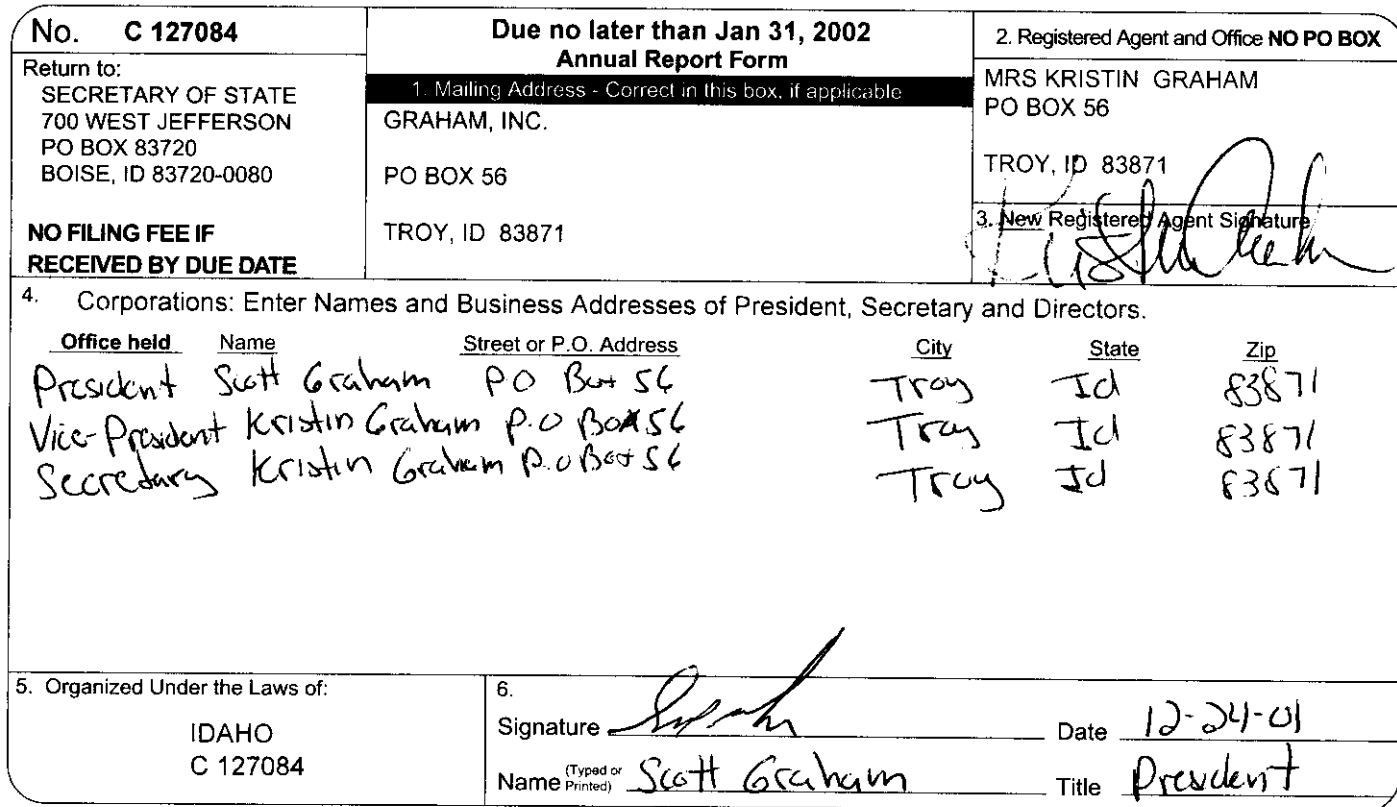 No. C 127084
Return to:
SECRETARY OF STATE
700 WEST JEFFERSON
PO BOX 83720
BOISE, ID 83720-0080
NO FILING FEE IF
RECEIVED BY DUE DATE
Due no later than Jan 31, 2002
Annual Report Form
1. Mailing Address - Correct in this box, if applicable
GRAHAM, INC.
PO BOX 56
TROY, ID 83871
2. Registered Agent and Office NO PO BOX
MRS KRISTIN GRAHAM
PO BOX 56
TROY, ID 83871
3. New Registered Agent Signature
4. Corporations: Enter Names and Business Addresses of President, Secretary and Directors.
Office held Name Street or P.O. Address City State Zip
President Scott Graham PO Box 56 Troy Id 83871
Vice-President Kristin Graham P.O Box 56 Troy Id 83871
Secretary Kristin Graham P.O Box 56 Troy Id 83871
5. Organized Under the Laws of:
IDAHO
C 127084
6.
Signature Date 12-24-01
Name (Typed or Printed) Scott Graham Title President